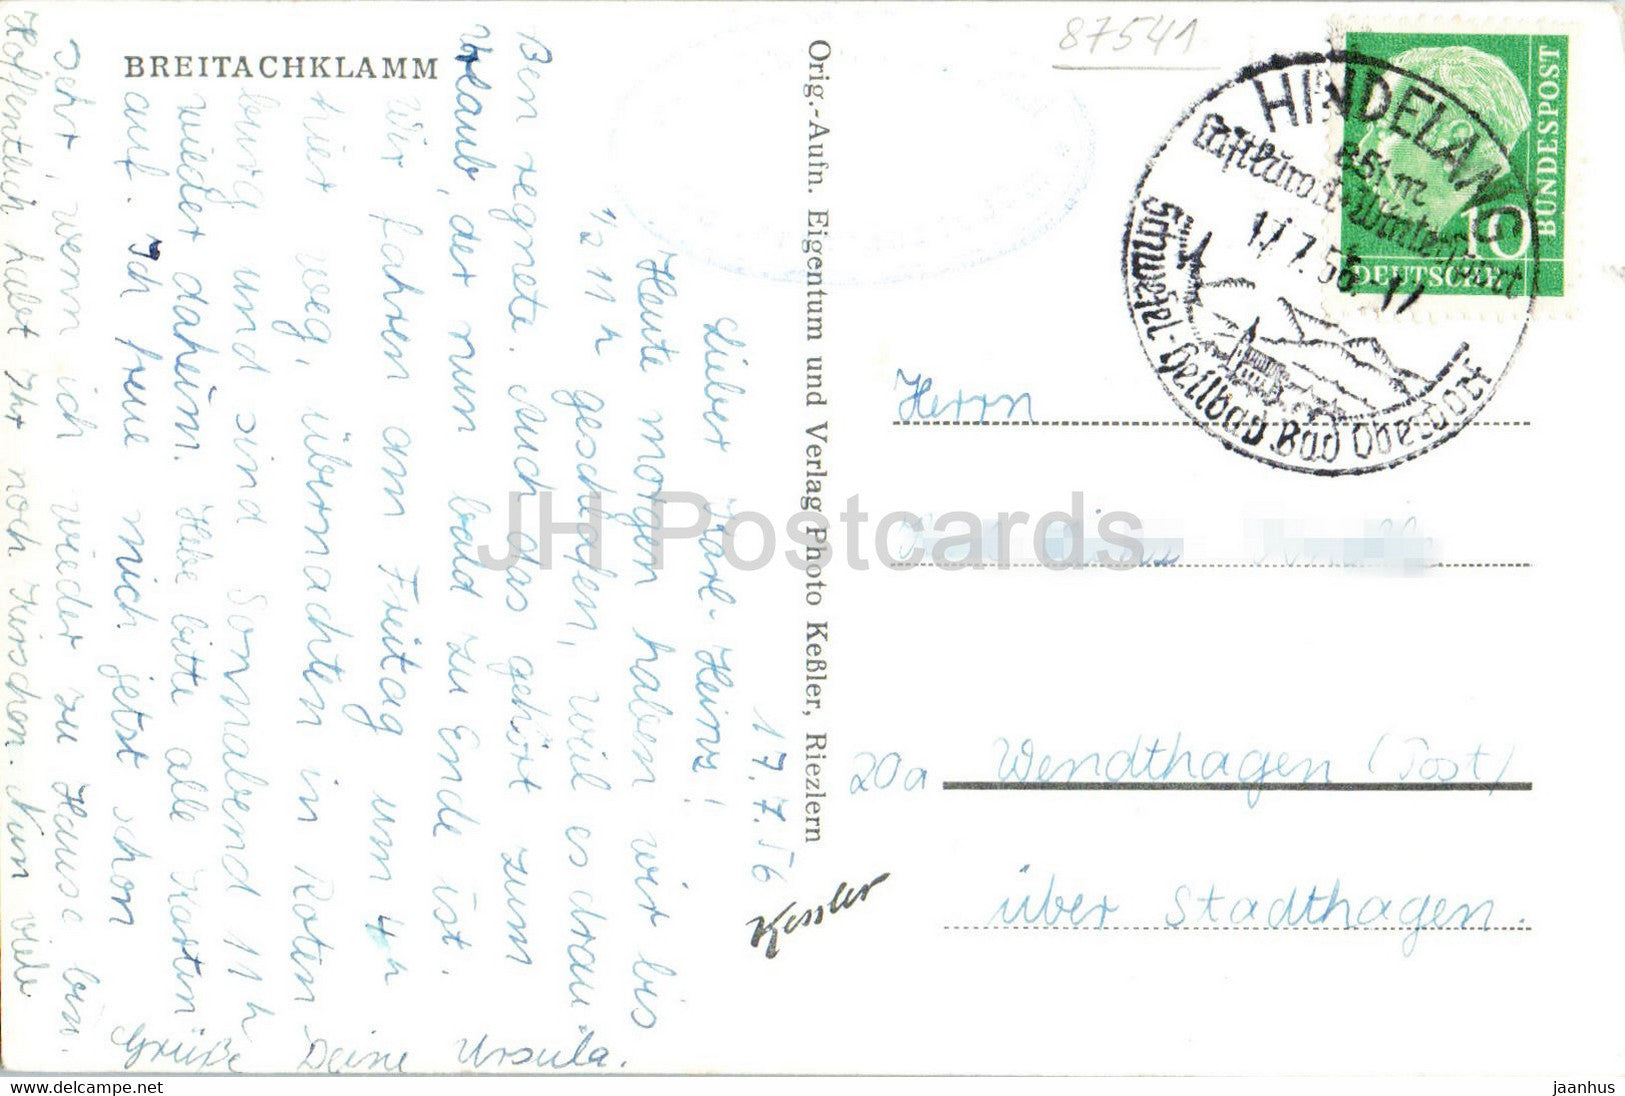 BREITACHKLAMM
17.7.56
Lieber Karl-Heinz!
Heute morgen haben wir bis
½ 11 h geschlafen, weil es drau-
ßen regnete. Auch das gehört zum
Urlaub, der nun bald zu Ende ist.
Wir fahren am Freitag um 4 h
hier weg, übernachten in Roten
burg und sind Sonnabend 11 h
wieder daheim. Hebe bitte alle Karten
auf. Ich freue mich jetzt schon
sehr, wenn ich wieder zu Hause bin.
Hoffentlich habt Ihr noch Kirschen. Nun viele
Grüße Deine Ursula.
Orig.-Aufn. Eigentum und Verlag Photo Keßler, Riezlern
Kessler
87541
HINDELANG
851 m
Luftkurort-Wintersport
17.7.56.-17
Schwefel-Heilbad Bad Oberdorf
10
DEUTSCHE
BUNDESPOST
Herrn
20a Wendthagen (Post)
über Stadthagen.
JH Postcards
https://www.delcampe.net
jaanhus